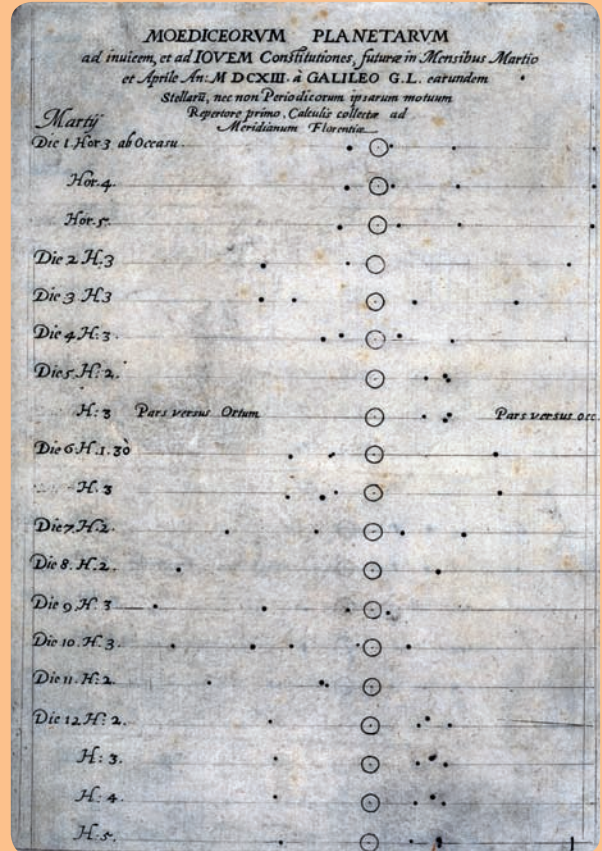 MOEDICEORVM PLANETARVM
ad inuicem, et ad IOVEM Constitutiones, futuræ in Mensibus Martio
et Aprile An: M DCXIII. à GALILEO G.L. earundem
Stellarũ, nec non Periodicorum ipsarum motuum
Repertore primo. Calculis collectæ ad
Meridianum Florentiæ
Martij
Die 1. Hor. 3 ab Occasu.
Hor. 4.
Hor. 5.
Die 2 H. 3
Die 3. H. 3
Die 4 H: 3.
Die 5. H: 2.
H: 3 Pars versus Ortum Pars versus occ.
Die 6. H. 1. 30
H. 3
Die 7. H. 2.
Die 8. H. 2.
Die 9. H. 3
Die 10. H. 3.
Die 11. H: 2.
Die 12 H: 2.
H: 3.
H: 4.
H: 5.